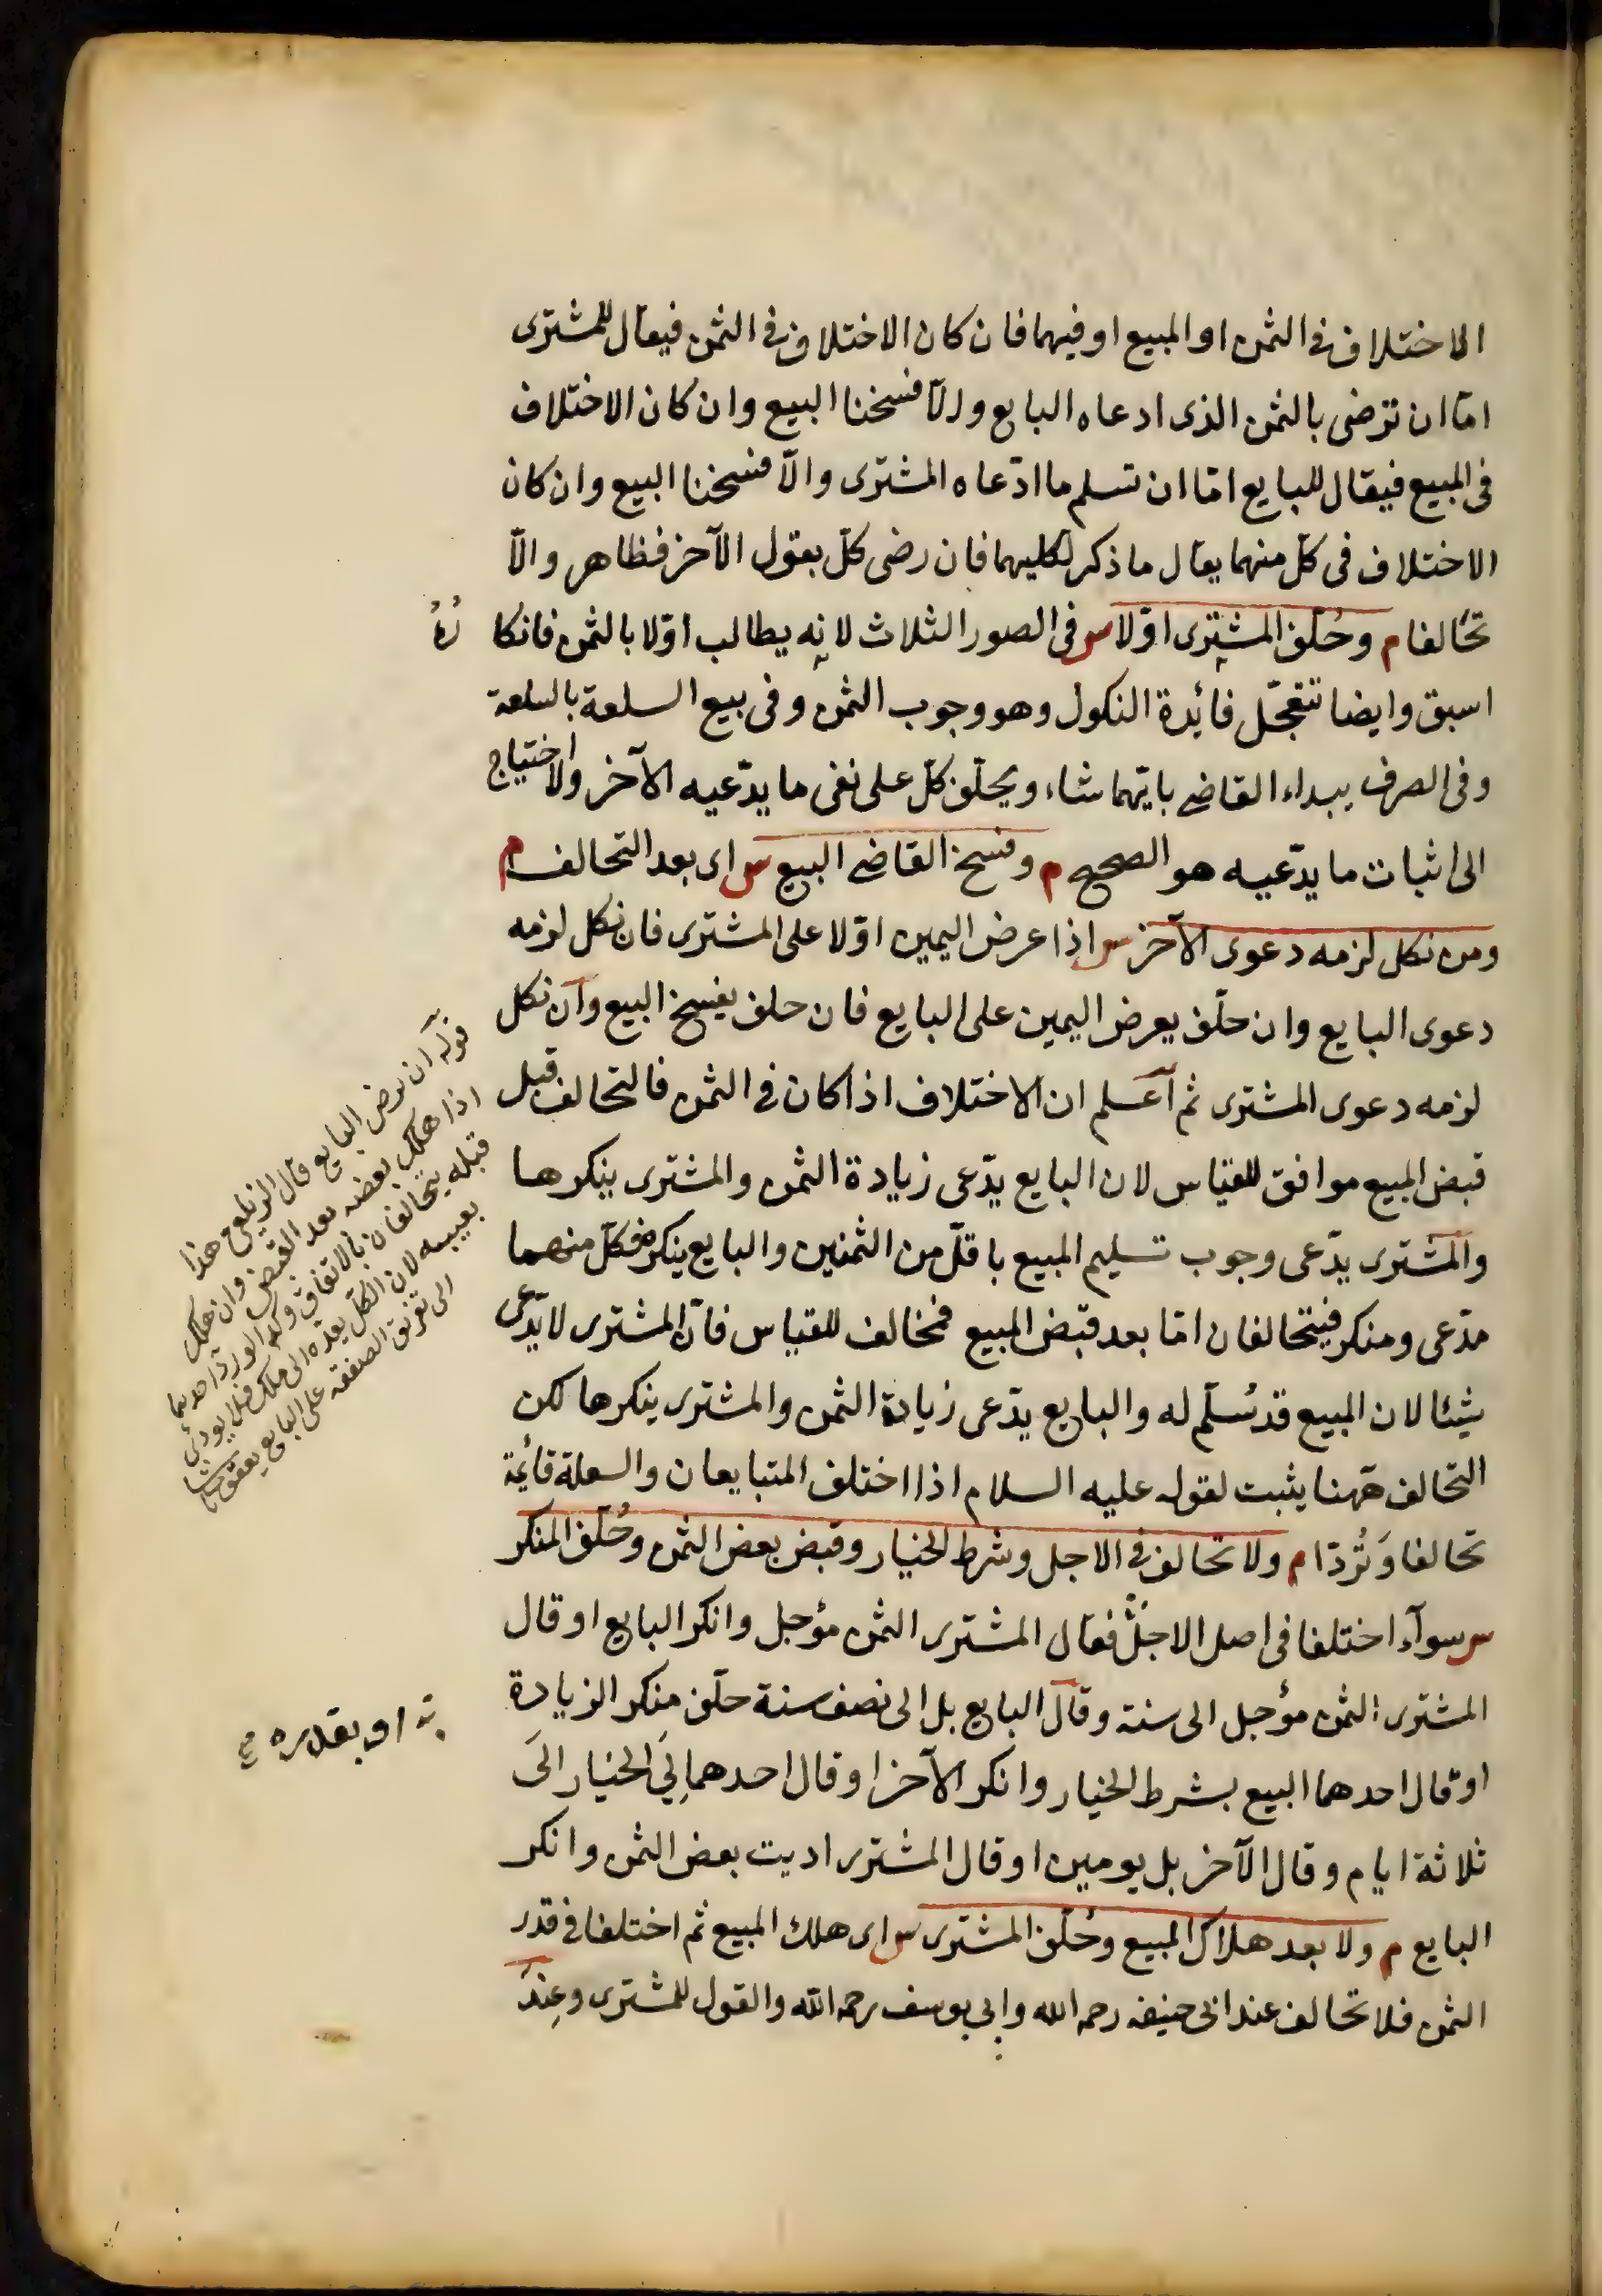 الاختلاف فى الثمن او المبيع او فيهما فان كان الاختلاف فى الثمن فيقال للمشترى
امّا ان ترضى بالثمن الذى ادعاه البايع والّا فسخنا البيع وان كان الاختلاف
فى المبيع فيقال للبايع امّا ان تسلم ما ادّعاه المشترى والّا فسخنا البيع وان كان
الاختلاف فى كلّ منهما يقال ما ذكر لكليهما فان رضى كلّ بقول الآخر فظاهر والّا
تحالفا م وحُلّف المشترى اوّلا س فى الصور الثلاث لانه يطالب اوّلا بالثمن فانكا
رُهُ
اسبق وايضا تتعجّل فائدة النكول وهو وجوب الثمن وفى بيع السلعة بالسلعة
وفى الصرف يبداء القاضى بايّهما شاء ويحلّف كلّ على نفى ما يدّعيه الآخر ولا احتياج
الى اثبات ما يدّعيه هو الصحيح م وفسخ القاضى البيع س اى بعد التحالف م
ومن نكل لزمه دعوى الآخر س اذا عرض اليمين اوّلا على المشترى فان نكل لزمه
دعوى البايع وان حلّف يعرض اليمين على البايع فان حلف يفسخ البيع وان نكل
لزمه دعوى المشترى ثم اعلم ان الاختلاف اذا كان فى الثمن فالتحالف قبل
قبض المبيع موافق للقياس لان البايع يدّعى زيادة الثمن والمشترى ينكرها
والمشترى يدّعى وجوب تسليم المبيع باقلّ من الثمنين والبايع ينكره فكلّ منهما
مدّعى ومنكر فيتحالفان امّا بعد قبض المبيع فمخالف للقياس فانّ المشترى لا يدّعى
شيئا لان المبيع قد سُلّم له والبايع يدّعى زيادة الثمن والمشترى ينكرها لكن
التحالف ههنا يثبت لقوله عليه السلام اذا اختلف المتبايعان والسلعة قائمة
تحالفا وتُردّا م ولا تحالف فى الاجل وشرط الخيار وقبض بعض الثمن وحُلّف المنكر
س سوآء اختلفا فى اصل الاجل فقال المشترى الثمن مؤجل وانكر البايع او قال
المشترى الثمن مؤجل الى سنة وقال البايع بل الى نصف سنة حلّف منكر الزيادة
او قال احدهما البيع بشرط الخيار وانكر الآخر او قال احدهما لى الخيار الى
ثلاثة ايام وقال الآخر بل يومين او قال المشترى اديت بعض الثمن وانكر
البايع م ولا بعد هلاك المبيع وحُلّف المشترى س اى هلك المبيع ثم اختلفا فى قدر
الثمن فلا تحالف عند ابى حنيفه رحمه الله وابى يوسف رحمه الله والقول للمشترى وعِندَ
قوله ان رضى البايع قال الزيلعى هذا
اذا هلك بعضه بعد القبض وان هلك
قبله يتحالفان بالاتفاق وكذا لو ردّ احدهما
بعيبه لان الكلّ يعود الى ملكه فلا يودى
الى تفريق الصفقة على البايع
او بقدره